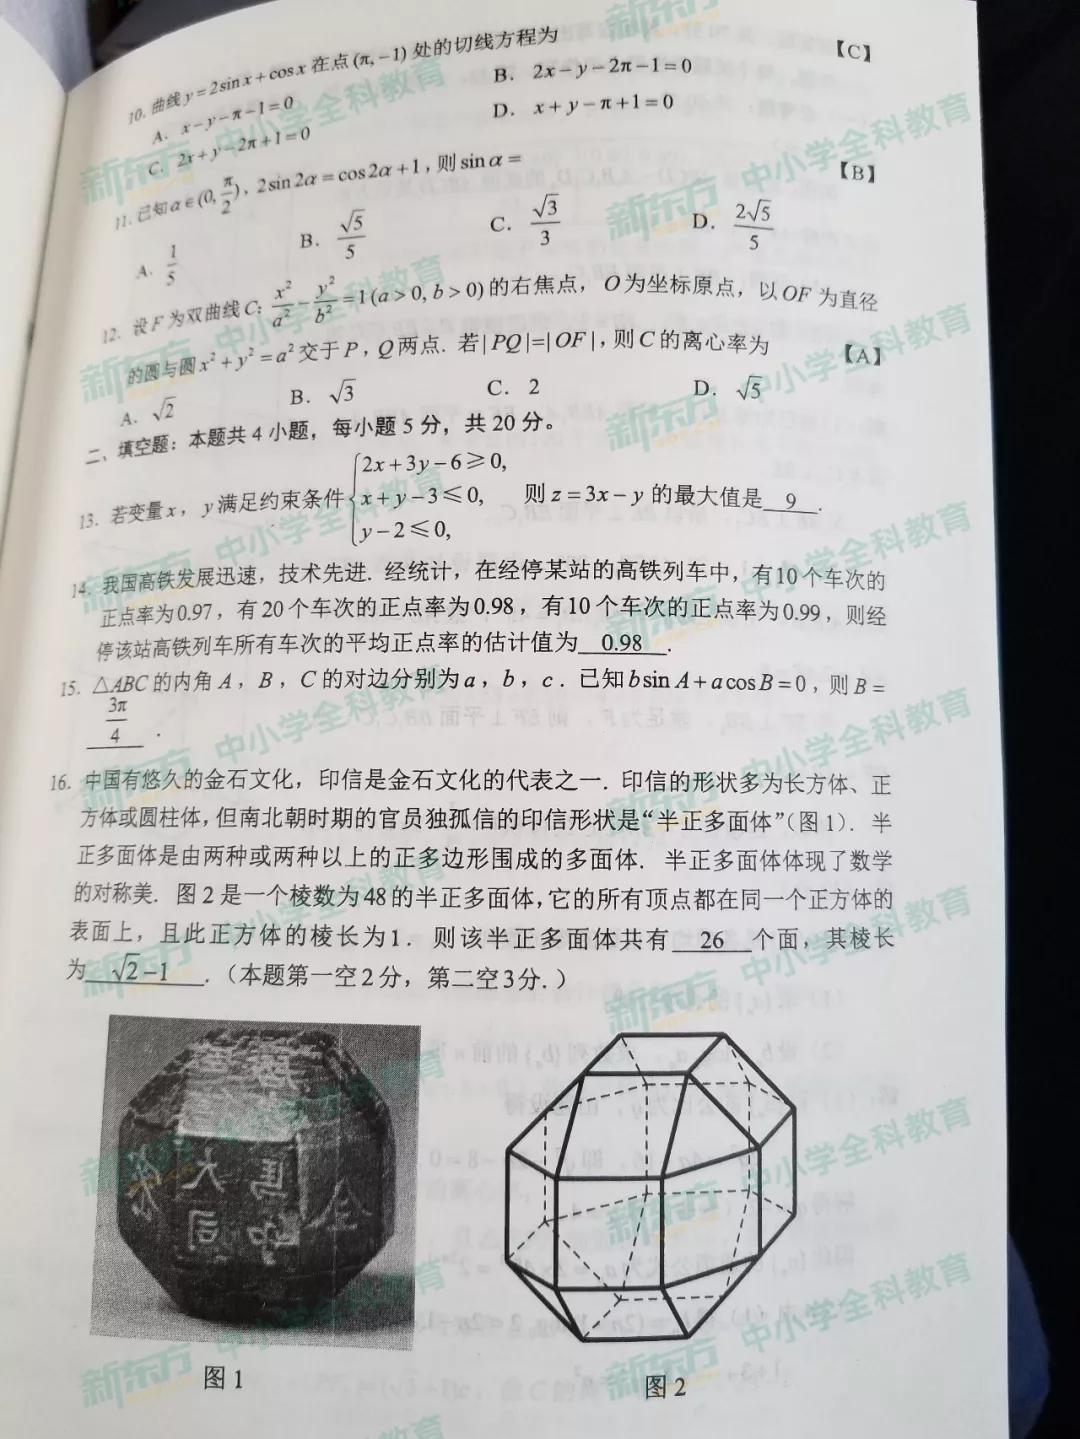 10. 曲线y=2sin x+cos x在点(π,-1)处的切线方程为 【C】
A. x-y-π-1=0 B. 2x-y-2π-1=0
C. 2x+y-2π+1=0 D. x+y-π+1=0
11. 已知α∈(0,π/2), 2sin2α=cos2α+1, 则sinα= 【B】
A. 1/5 B. √5/5 C. √3/3 D. 2√5/5
12. 设F为双曲线C: x²/a²-y²/b²=1(a>0,b>0)的右焦点, O为坐标原点, 以OF为直径
的圆与圆x²+y²=a²交于P, Q两点. 若|PQ|=|OF|, 则C的离心率为 【A】
A. √2 B. √3 C. 2 D. √5
二、填空题: 本题共4小题, 每小题5分, 共20分。
13. 若变量x, y满足约束条件{2x+3y-6≥0, x+y-3≤0, y-2≤0, 则z=3x-y的最大值是 9 .
14. 我国高铁发展迅速, 技术先进. 经统计, 在经停某站的高铁列车中, 有10个车次的
正点率为0.97, 有20个车次的正点率为0.98, 有10个车次的正点率为0.99, 则经
停该站高铁列车所有车次的平均正点率的估计值为 0.98 .
15. △ABC的内角A, B, C的对边分别为a, b, c. 已知bsin A+acos B=0, 则B=
3π/4 .
16. 中国有悠久的金石文化, 印信是金石文化的代表之一. 印信的形状多为长方体、正
方体或圆柱体, 但南北朝时期的官员独孤信的印信形状是“半正多面体”(图1). 半
正多面体是由两种或两种以上的正多边形围成的多面体. 半正多面体体现了数学
的对称美. 图2是一个棱数为48的半正多面体, 它的所有顶点都在同一个正方体的
表面上, 且此正方体的棱长为1. 则该半正多面体共有 26 个面, 其棱长
为 √2-1 . (本题第一空2分, 第二空3分.)
图1 图2
新东方 中小学全科教育